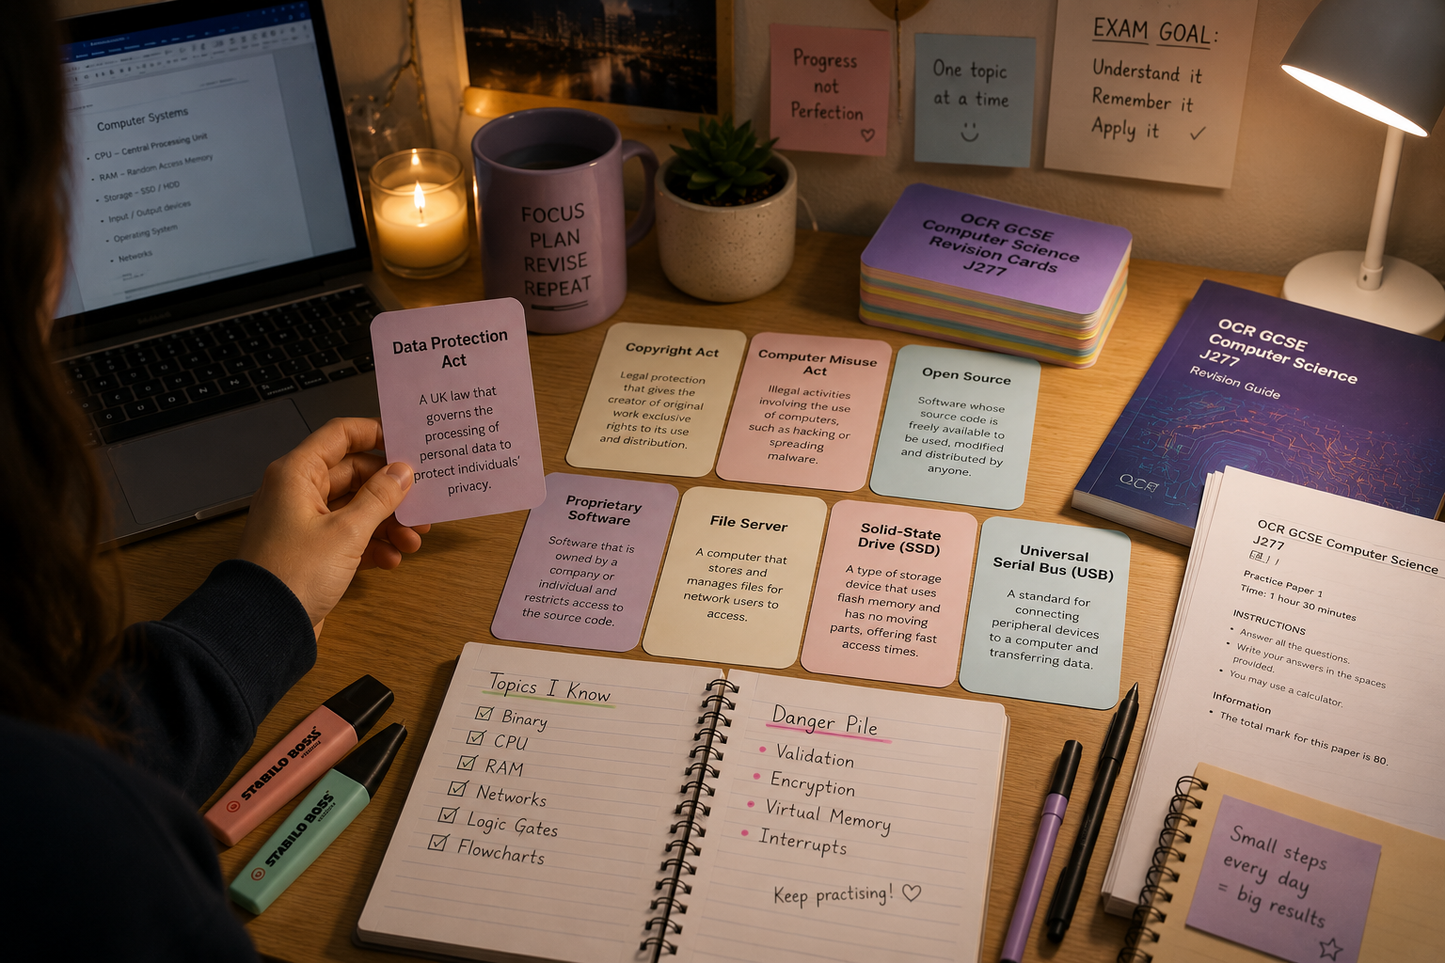 Computer Systems
• CPU – Central Processing Unit
• RAM – Random Access Memory
• Storage – SSD / HDD
• Input / Output devices
• Operating System
• Networks
FOCUS
PLAN
REVISE
REPEAT
Progress
not
Perfection
One topic
at a time
EXAM GOAL:
Understand it
Remember it
Apply it ✓
OCR GCSE
Computer Science
Revision Cards
J277
OCR GCSE
Computer Science
J277
Revision Guide
OCR
Data Protection
Act
A UK law that
governs the
processing of
personal data to
protect individuals'
privacy.
Copyright Act
Legal protection
that gives the
creator of original
work exclusive
rights to its use
and distribution.
Computer Misuse
Act
Illegal activities
involving the use
of computers,
such as hacking or
spreading
malware.
Open Source
Software whose
source code is
freely available to
be used, modified
and distributed by
anyone.
Proprietary
Software
Software that is
owned by a
company or
individual and
restricts access to
the source code.
File Server
A computer that
stores and
manages files for
network users to
access.
Solid-State
Drive (SSD)
A type of storage
device that uses
flash memory and
has no moving
parts, offering fast
access times.
Universal
Serial Bus (USB)
A standard for
connecting
peripheral devices
to a computer and
transferring data.
OCR GCSE Computer Science
J277
Practice Paper 1
Time: 1 hour 30 minutes
INSTRUCTIONS
• Answer all the questions.
• Write your answers in the spaces
provided.
• You may use a calculator.
Information
• The total mark for this paper is 80.
STABILO BOSS
STABILO BOSS
Topics I Know
☑ Binary
☑ CPU
☑ RAM
☑ Networks
☑ Logic Gates
☑ Flowcharts
Danger Pile
• Validation
• Encryption
• Virtual Memory
• Interrupts
Keep practising! ♡
Small steps
every day
= big results